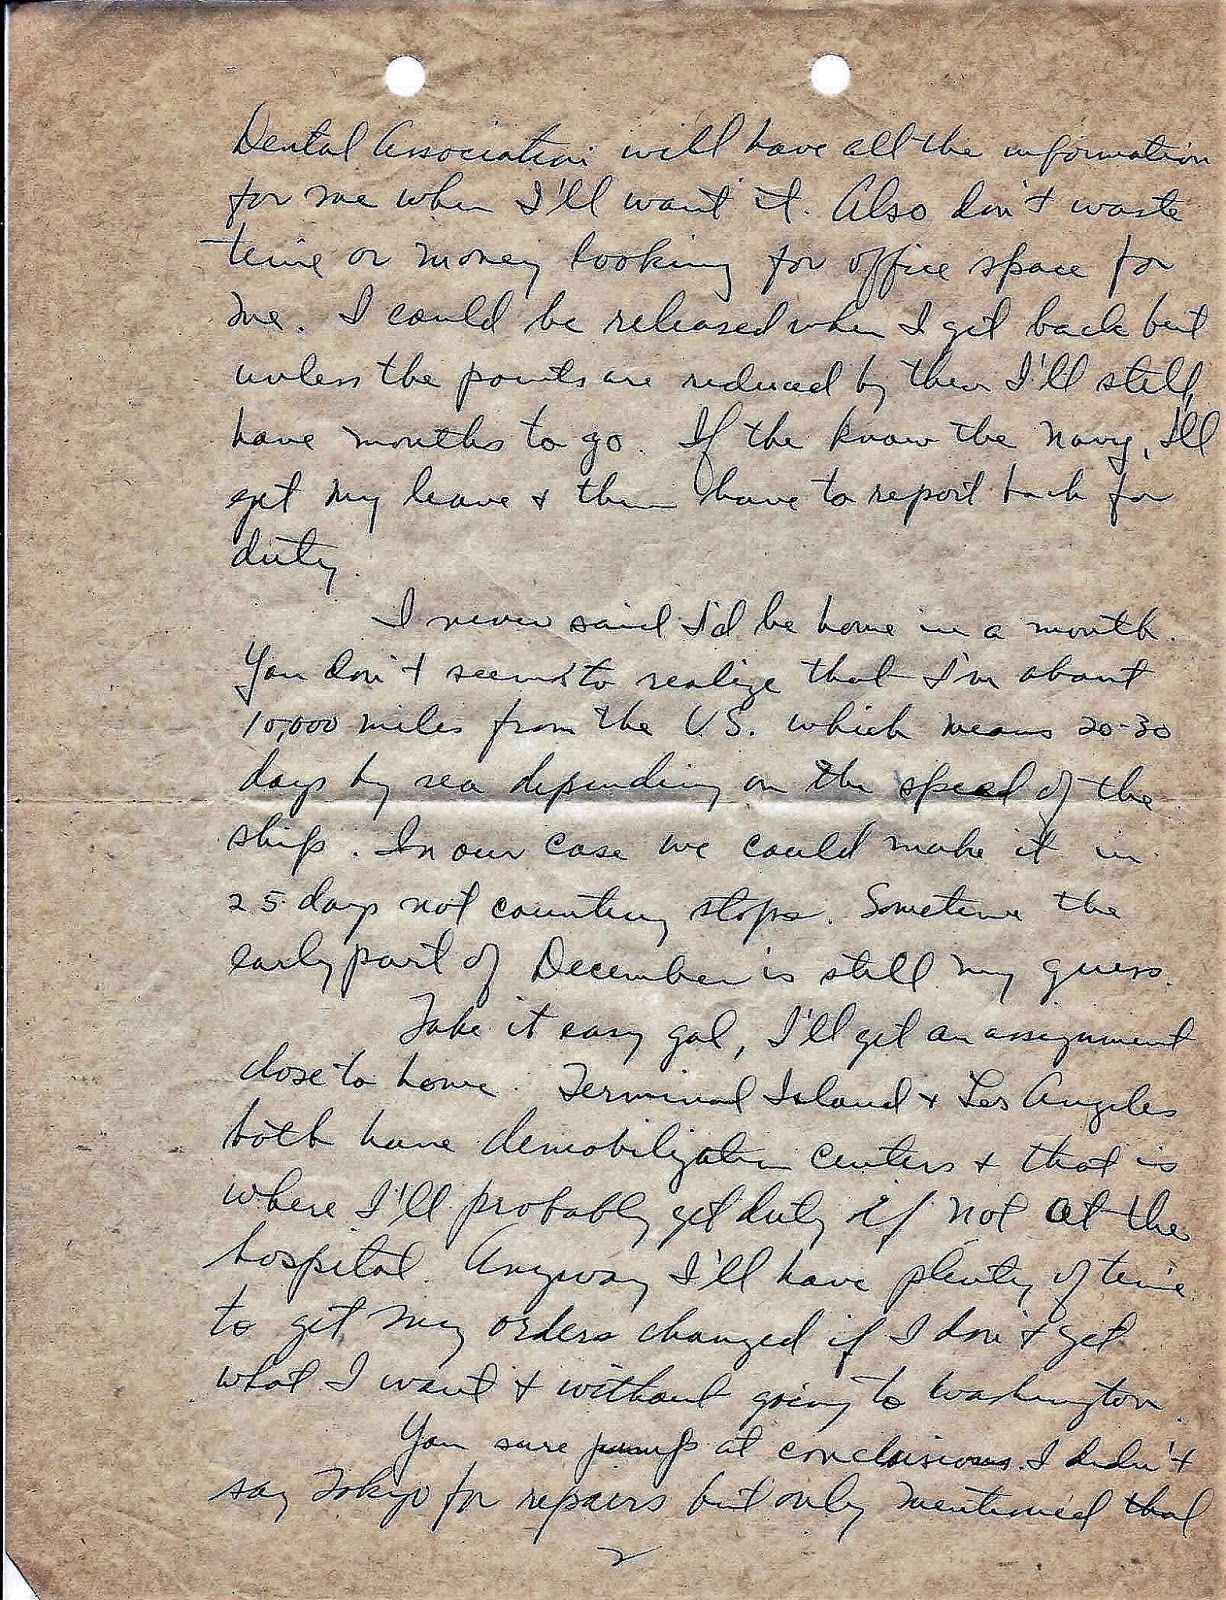 Dental Association will have all the information
for me when I'll want it. Also don't waste
time or money looking for office space for
me. I could be released when I get back but
unless the points are reduced by then I'll still
have months to go. If the know the Navy, I'll
get my leave & then have to report back for
duty.
I never said I'd be home in a month.
You don't seem to realize that I'm about
10,000 miles from the U.S. which means 20-30
days by sea depending on the speed of the
ship. In our case we could make it in
25 days not counting stops. Sometime the
early part of December is still my guess.
Take it easy gal, I'll get an assignment
close to home. Terminal Island & Los Angeles
both have demobilization centers & that is
where I'll probably get duty if not at the
hospital. Anyway I'll have plenty of time
to get my orders changed if I don't get
what I want & without going to Washington.
You sure jump at conclusions. I didn't
say Tokyo for repairs but only mentioned that
2